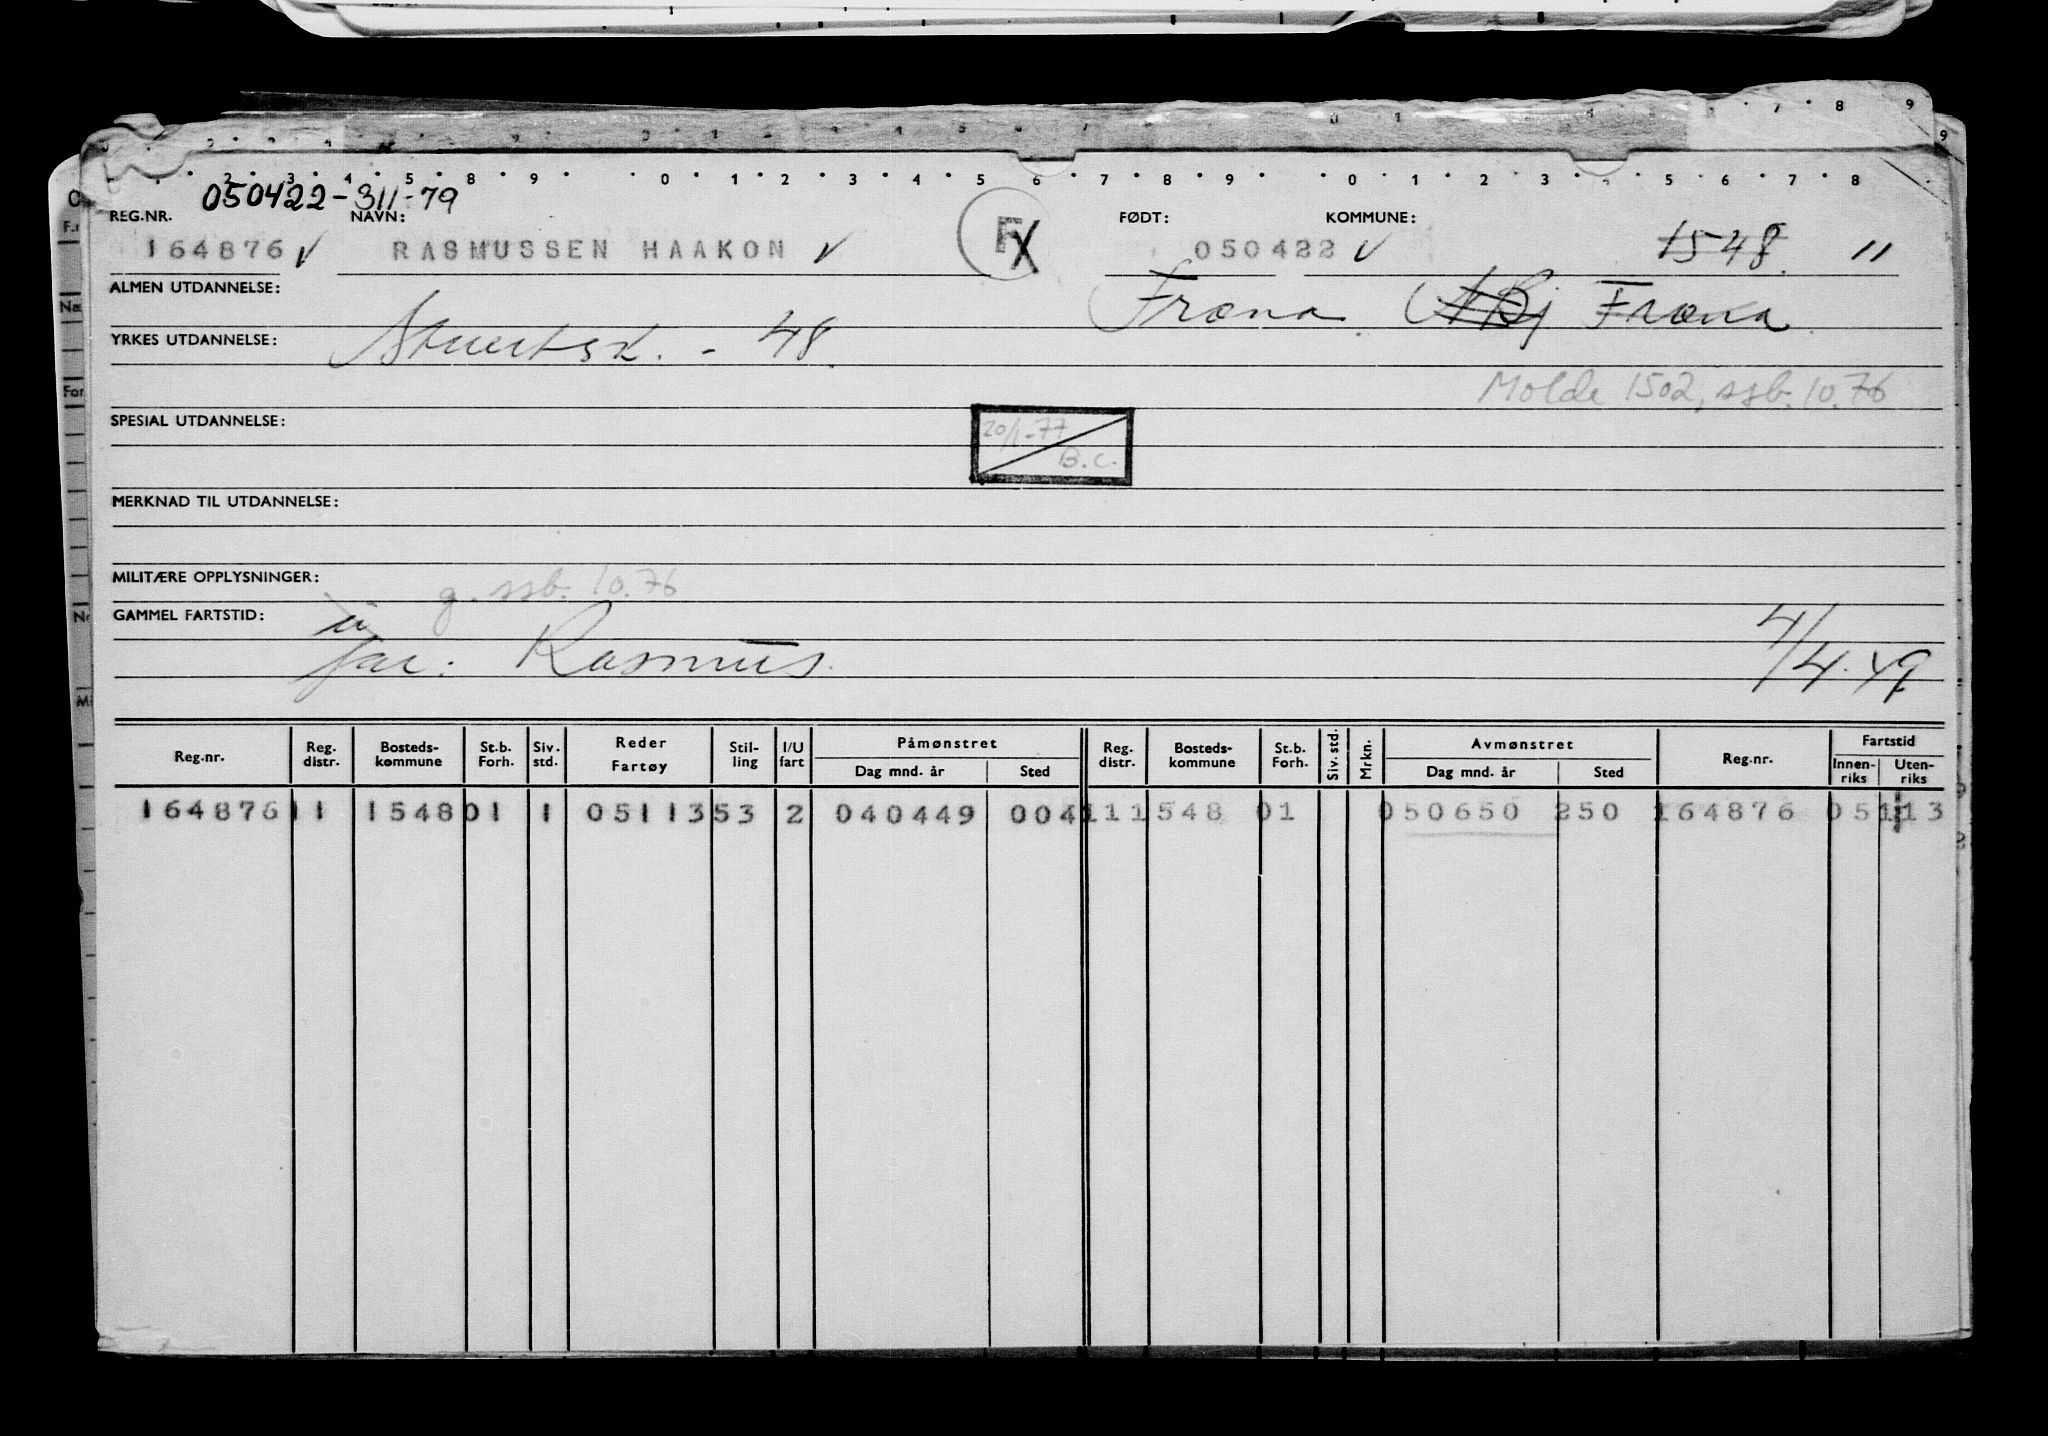 050422-311-79
REG.NR. NAVN: FØDT: KOMMUNE:
164876 ✓ RASMUSSEN HAAKON ✓ FX 050422 ✓ 1548 "
ALMEN UTDANNELSE: Fræna Fræna
YRKES UTDANNELSE: - 48
Molde 1502, ssb. 10.76
SPESIAL UTDANNELSE: 20/1-77
B.C.
MERKNAD TIL UTDANNELSE:
MILITÆRE OPPLYSNINGER: g. ssb. 10.76
GAMMEL FARTSTID:
Far: Rasmus. 4/4.49
Reg.nr. Reg. distr. Bosteds- kommune St.b. Forh. Siv. std. Reder Fartøy Stil- ling I/U fart Påmønstret Dag mnd. år Sted Reg. distr. Bosteds- kommune St.b. Forh. Siv. std. Mrkn. Avmønstret Dag mnd. år Sted Reg.nr. Fartstid Innen- riks Uten- riks
164876 11 1548 01 1 05113 53 2 040449 004 11 1548 01 050650 250 164876 05113